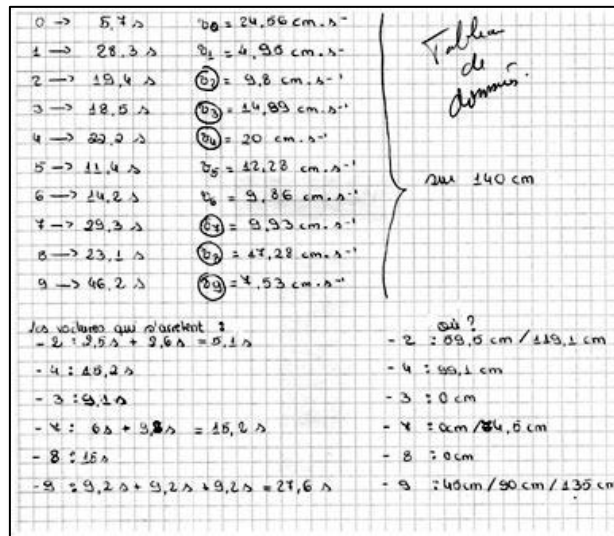 0 -> 5,7 s v0 = 24,56 cm.s-
1 -> 28,3 s v1 = 4,95 cm.s-
2 -> 19,4 s v2 = 9,8 cm.s-1
3 -> 18,5 s v3 = 14,89 cm.s-1
4 -> 22,2 s v4 = 20 cm.s-1
5 -> 11,4 s v5 = 12,28 cm.s-1
6 -> 14,2 s v6 = 9,86 cm.s-1
7 -> 29,3 s v7 = 9,93 cm.s-1
8 -> 23,1 s v8 = 17,28 cm.s-1
9 -> 46,2 s v9 = 7,53 cm.s-1
Tableau
de
données.
sur 140 cm
les voitures qui s'arretent :
- 2 : 2,5 s + 2,6 s = 5,1 s
- 4 : 15,2 s
- 3 : 9,1 s
- 7 : 6 s + 9,2 s = 15,2 s
- 8 : 15 s
- 9 : 9,2 s + 9,2 s + 9,2 s = 27,6 s
où ?
- 2 : 59,5 cm / 119,1 cm
- 4 : 99,1 cm
- 3 : 0 cm
- 7 : 0 cm / 4,5 cm
- 8 : 0 cm
- 9 : 45 cm / 90 cm / 135 cm